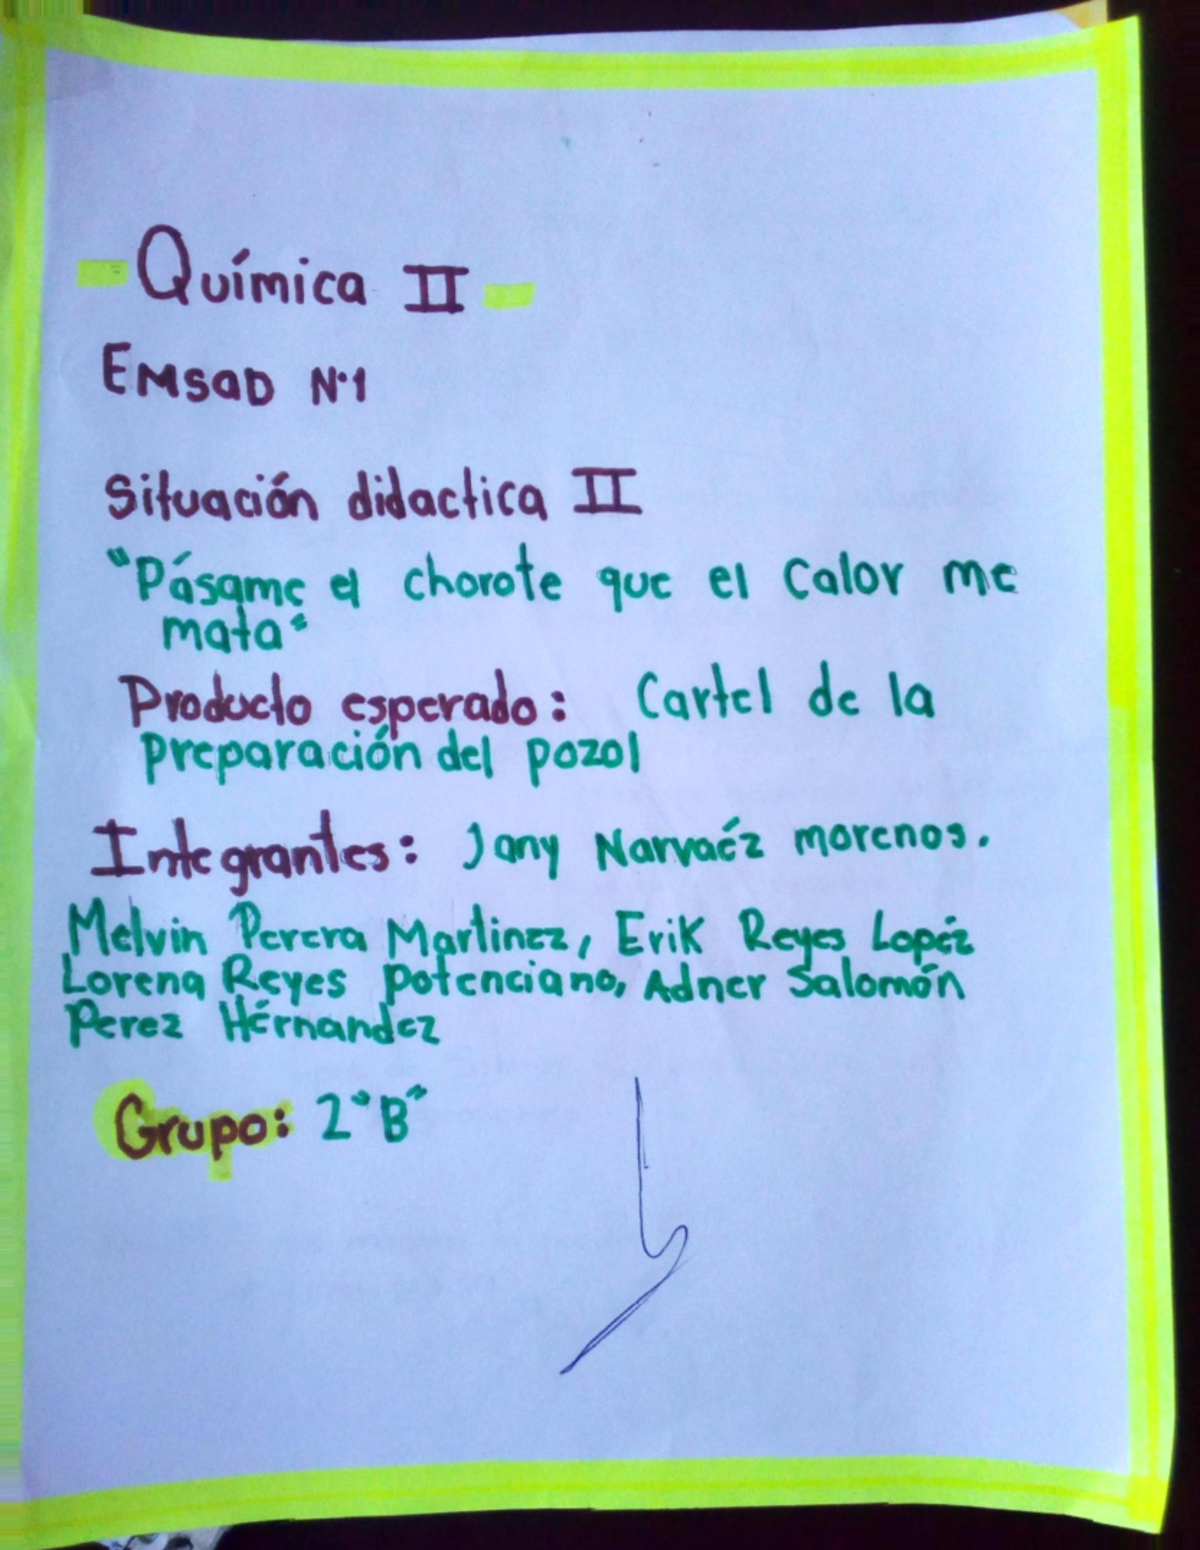 - Química II -
EMSaD N°1
Situación didactica II
"Pásame el chorote que el Calor me
mata"
Producto esperado: Cartel de la
preparación del pozol
Integrantes: Jany Narvaéz morenos.
Melvin Perera Martinez, Erik Reyes Lopéz
Lorena Reyes potenciano, Adner Salomón
Perez Hérnandez
Grupo: 2"B"